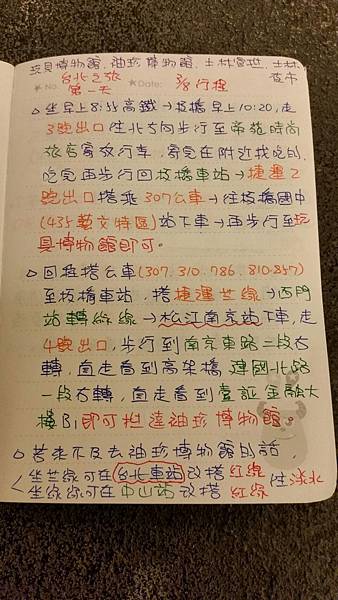 玩具博物館.袖珍博物館.士林官邸.士林
夜市
台北之旅
★ No. ★ Date: 3/8行程
第一天
○坐早上8:35高鐵→板橋早上10:20,走
3號出口往北方向步行至帝苑時尚
旅店寄放行李,寄完在附近找吃的.
吃完再步行回板橋車站→捷運2
號出口搭乘307公車→往板橋國中
(435藝文特區)站下車→再步行至玩
具博物館即可。
○回程搭公車(307.310.786.810.857)
至板橋車站,搭捷運藍線→西門
站轉綠線→松江南京站下車,走
4號出口,步行到南京東路二段右
轉,直走看到高架橋建國北路
一段右轉,直走看到臺証金融大
樓B1即可抵達袖珍博物館。
○若來不及去袖珍博物館的話,
坐藍線可在台北車站改搭紅線往淡水
坐綠線可在中山站改搭紅線